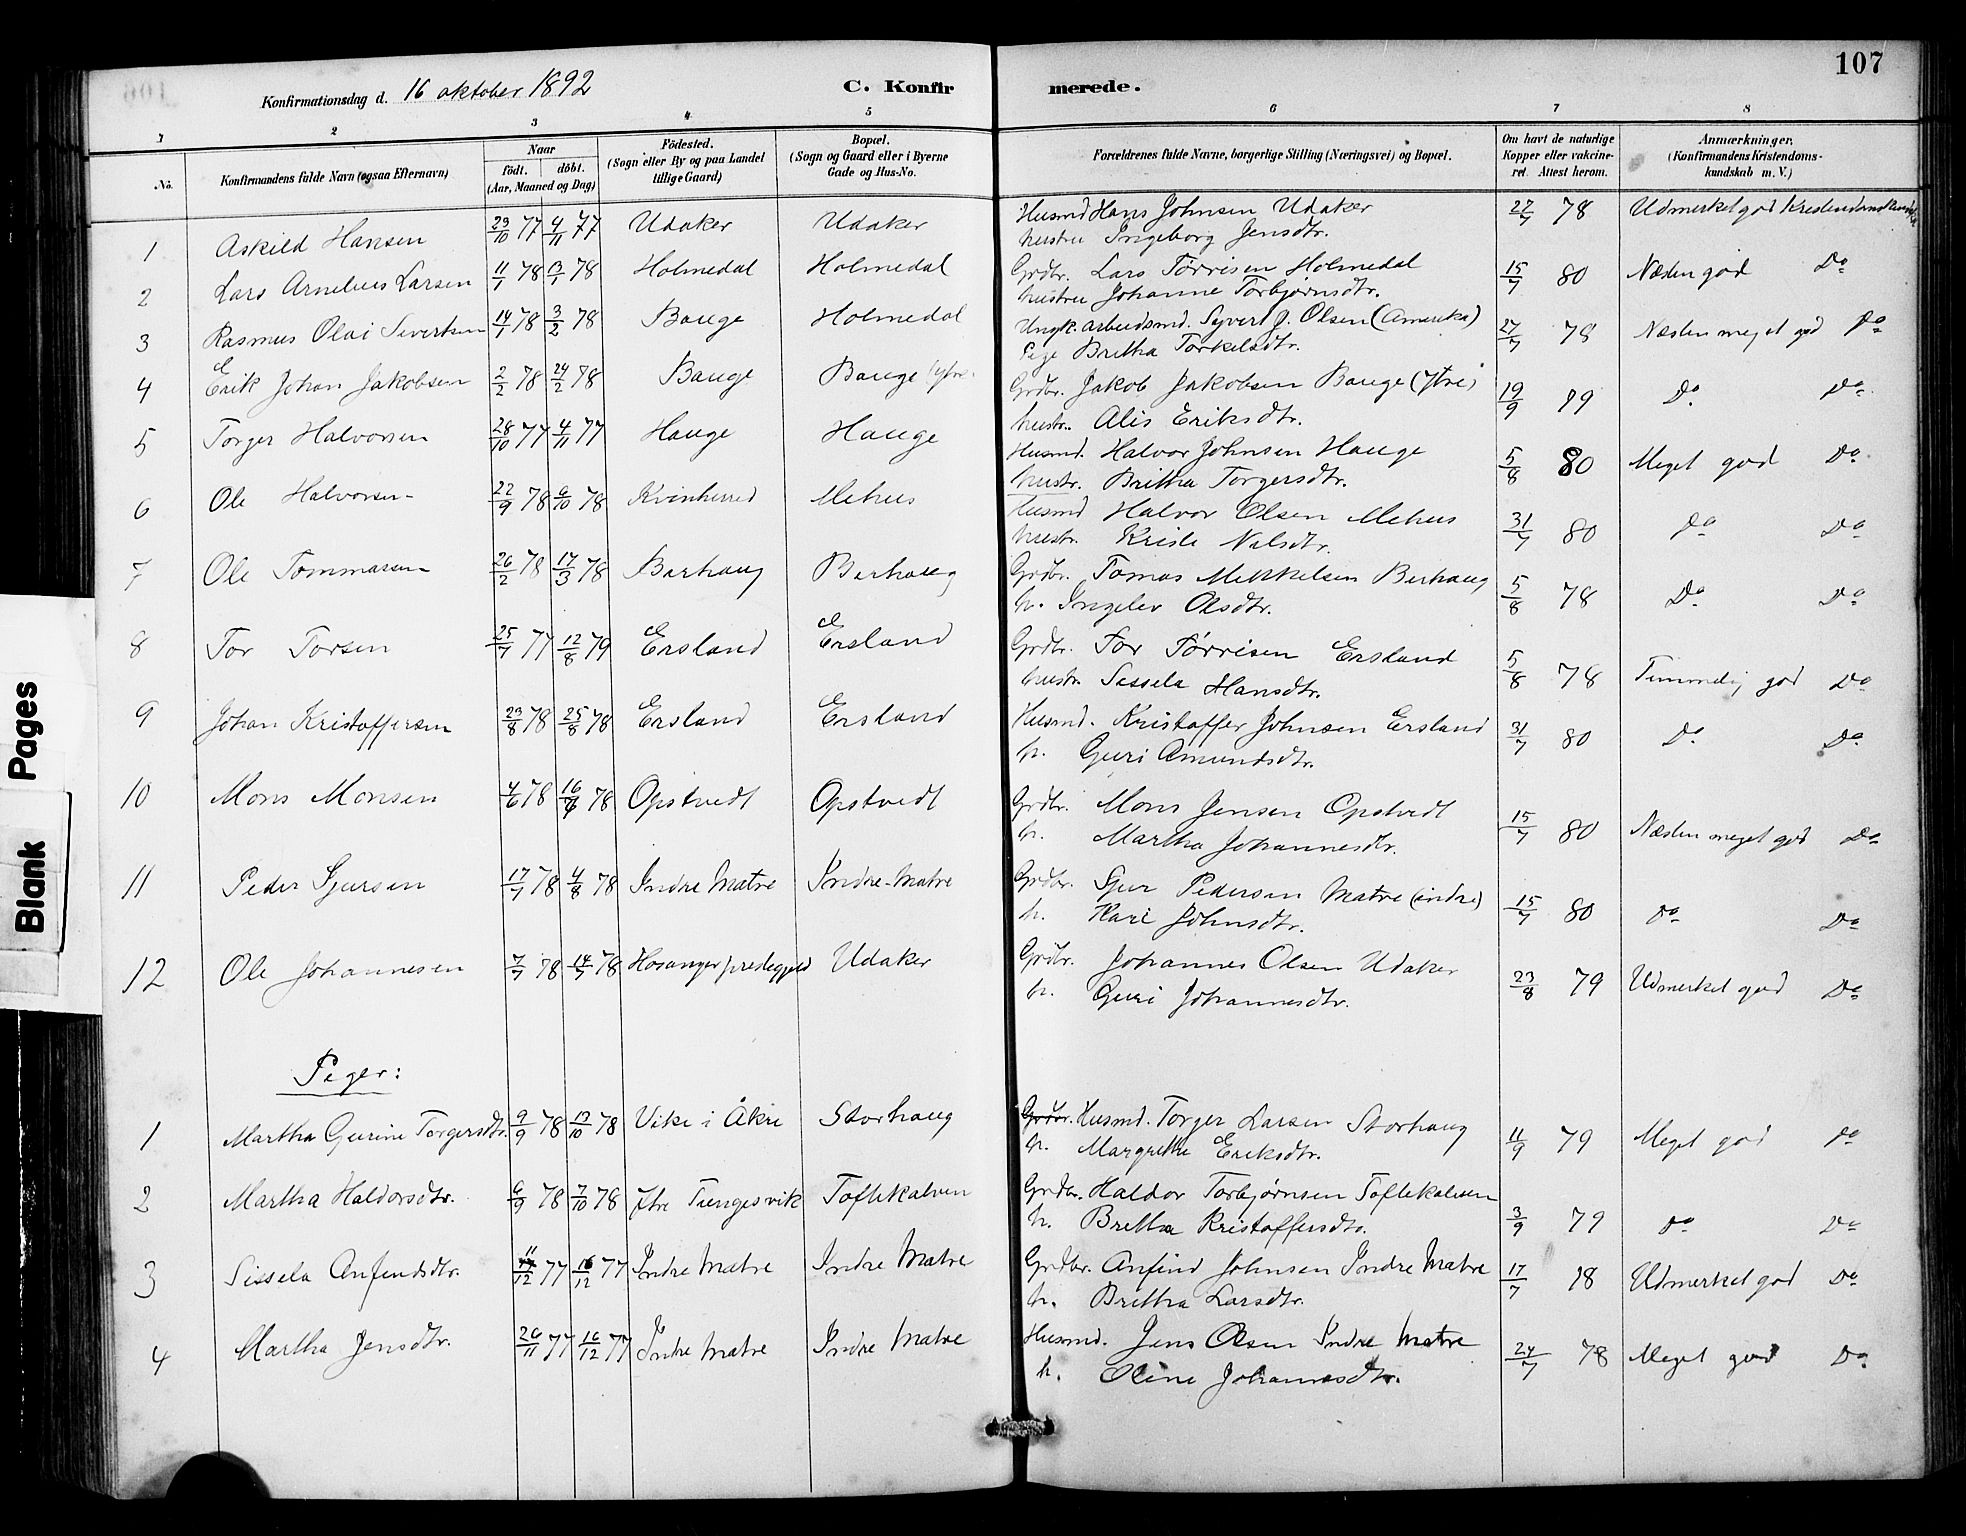 107
Konfirmationsdag d. 16 oktober 1892 C. Konfirmerede.
1 2 3 4 5 6 7 8
No. Konfirmandens fulde Navn (ogsaa Efternavn) Naar födt. döbt. (Aar, Maaned og Dag) Födested. (Sogn eller By og paa Landet tillige Gaard) Bopæl. (Sogn og Gaard eller i Byerne Gade og Hus-No. Forældrenes fulde Navne, borgerlige Stilling (Næringsvei) og Bopæl. Om havt de naturlige Kopper eller vakcineret. Attest herom. Anmærkninger. (Konfirmandens Kristendomskundskab m. V.)
1 Askild Hansen 23/10 77 4/11 77 Udaker Udaker Husmd Hans Johnsen Udaker 27/7 78 Udmerket god
hustru Ingeborg Jensdtr.
2 Lars Arnelius Larsen 11/1 78 78 Holmedal Holmedal Grdbr. Lars Tørrisen Holmedal 15/7 80 Næsten god Do
hustru Johanne Torbjørnsdtr.
3 Rasmus Olai Sivertsen 14/1 78 3/2 78 Bauge Holmedal Ungk. arbeidsmd. Syvert J. Olsen (Amerika) 27/7 78 Næsten meget god Do
Pige Britha Torkelsdtr.
4 Erik Johan Jakobsen 2/2 78 24/2 78 Bauge Bauge (ytre Grdbr. Jakob Jakobsen Bauge (ytre) 19/9 79 Do Do
hustr. Alis Eriksdtr.
5 Torger Halvorsen 28/10 77 4/11 77 Hauge Hauge Husmd. Halvor Johnsen Hauge 5/8 80 Meget god Do
hustr. Britha Torgersdtr.
6 Ole Halvorsen 22/9 78 6/10 78 Kvinherred Mehus Husmd Halvor Olsen Mehus 31/7 80 Do Do
hustr. Nilsdtr.
7 Ole Tommasen 26/2 78 17/3 78 Barhaug Berhaug Grdbr. Tomas Mikkelsen Berhaug 5/8 78 Do Do
h. Ingelev Olsdtr.
8 Tor Torsen 25/7 77 12/8 79 Ersland Ersland Grdbr. Tor Tørrisen Ersland 5/8 78 Temmelig god Do
hustr. Sissela Hansdtr.
9 Johan Kristoffersen 23/8 78 25/8 78 Ersland Ersland Husmd. Kristoffer Johnsen Ersland 31/7 80 Do Do
h. Guri Amundsdtr.
10 Mons Monsen 4/6 78 16/6 78 Opstvedt Opstvedt Grdbr. Mons Jensen Opstvedt 15/7 80 Næsten meget god Do
h. Martha Johannesdtr.
11 Peder Sjursen 17/7 78 4/8 78 Indre Matre Indre-Matre Grdbr. Sjur Pedersen Matre (indre) 15/7 80 Do Do
h. Kari Johnsdtr.
12 Ole Johannesen 7/7 78 14/7 78 Hosanger prestegjeld Udaker Grdbr. Johannes Olsen Udaker 23/8 79 Udmerket god Do
h. Guri Johannesdtr.
Piger:
1 Martha Gurine Torgersdtr. 9/9 78 13/10 78 Vike i Åkre Storhaug Grdbr. Husmd. Torger Larsen Storhaug 11/9 79 Meget god Do
h. Margrethe Eriksdtr.
2 Martha Haldorsdtr. 6/9 78 7/10 78 Ytre Tungesvik Toftekalven Grdbr. Haldor Torbjørnsen Toftekalven 3/9 79 Do Do
h. Britha Kristoffersdtr.
3 Sissela Anfindsdtr. 11/12 77 16/12 77 Indre Matre Indre Matre Grdbr. Anfind Johnsen Indre Matre 17/7 78 Udmerket god Do
h. Britha Larsdtr.
4 Martha Jensdtr. 26/11 77 16/12 77 Indre Matre Indre Matre Husmd. Jens Olsen Indre Matre 24/7 78 Meget god Do
h. Oline Johannesdtr.
Blank Pages